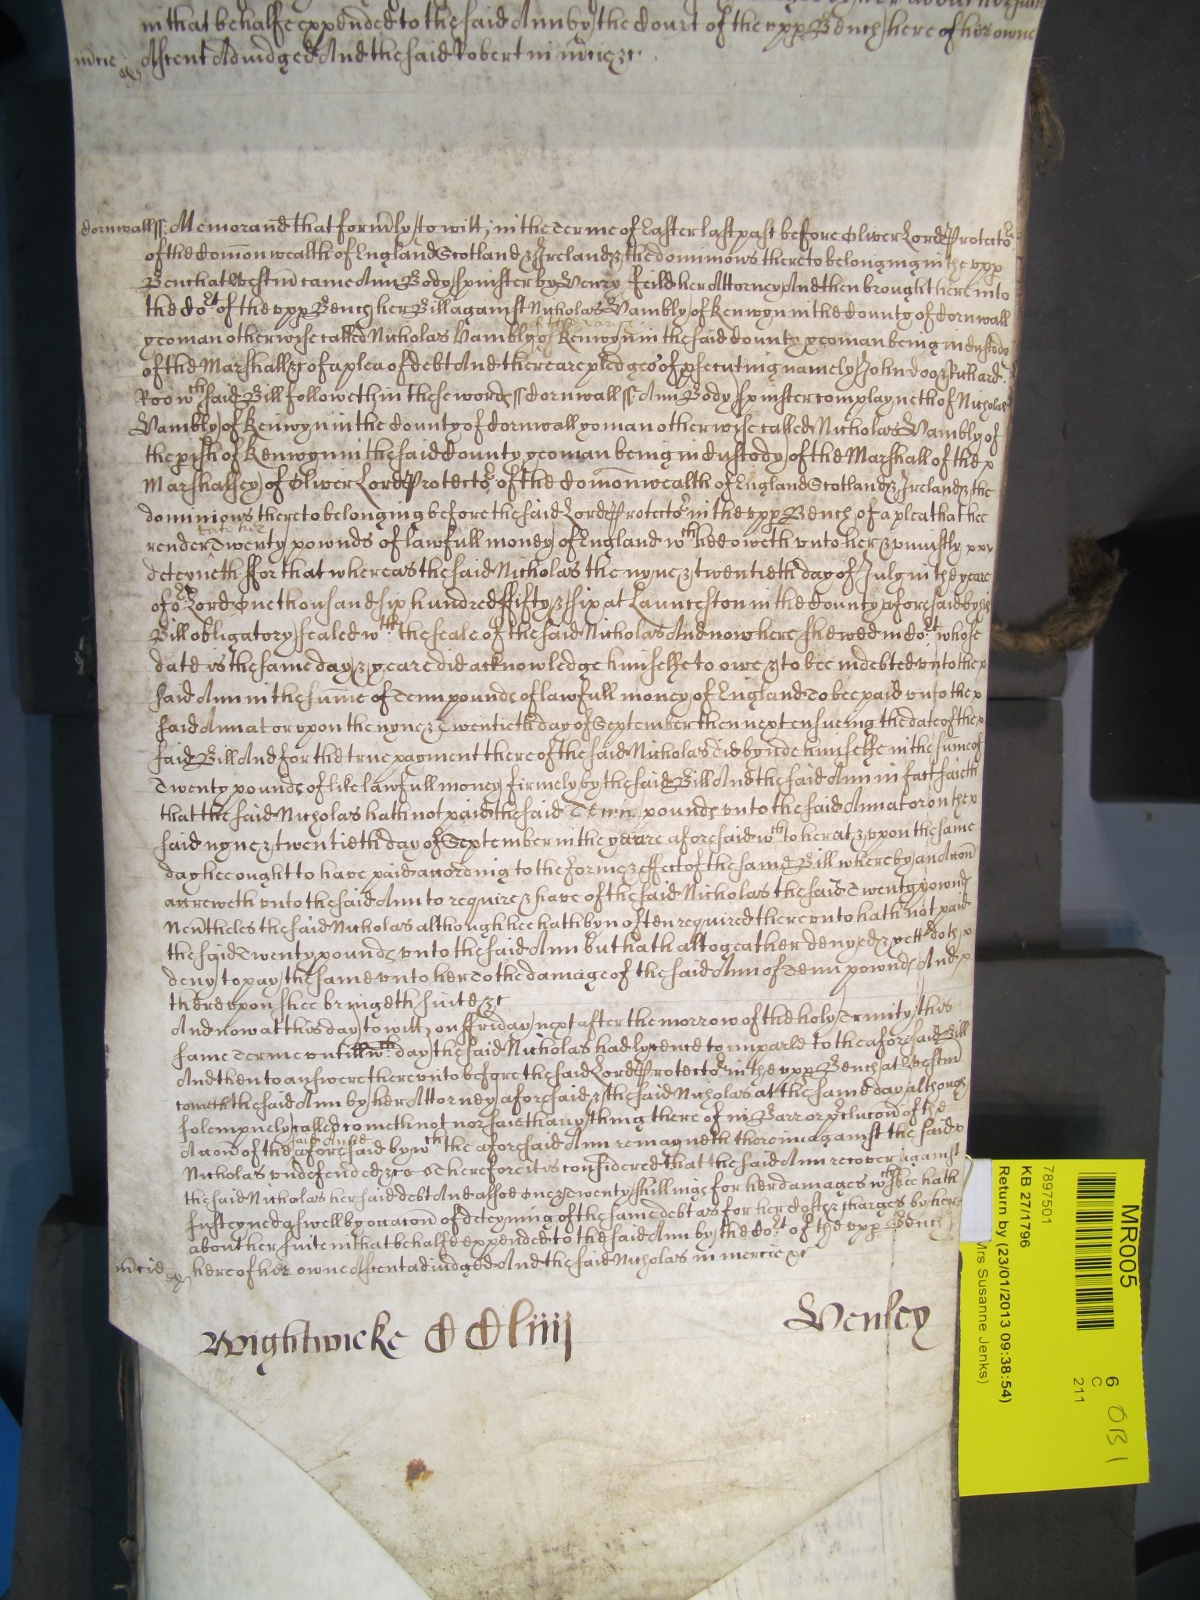 in that behalfe expended to the said Ann by the Court of the vpp Bench here of her owne
mcie Assent Adiudged And the said Robert in mcie &c.
Cornwall ss. Memorand that formly to witt, in the Terme of Easter last past before Oliver Lord Protector
of the Comonwealth of England Scotland & Ireland & the dominions thereto belonging in the vpp
Bench at Westm came Ann Body spinster by Henry Feild her Attorney And then brought here into
the Cort of the vpp Bench her Bill against Nicholas Vambly of Kenwyn in the County of Cornwall
yeoman otherwise called Nicholas Vambly of Kenwyn in the said County yeoman being in Custody
of the Marshall &c of a plea of debt And there are pledges of psecuting namely John Doo & Richard
Roo wch said Bill followeth in these words ss Cornwall ss. Ann Body spinster complayneth of Nicholas
Vambly of Kenwyn in the County of Cornwall yoman otherwise called Nicholas Vambly of
the pish of Kenwyn in the said County yeoman being in Custody of the Marshall of the
Marshalsey of Oliver Lord Protector of the Comonwealth of England Scotland & Ireland & the
dominions thereto belonging before the said Lord Protector in the vpp Bench of a plea that hee
render Twenty pownds of lawfull money of England wch hee oweth vnto her & vniustly
deteyneth ffor that whereas the said Nicholas the nyne & twentieth day of July in the yeare
of or Lord One thousand six hundred ffifty & six at Launceston in the County aforesaid by his
Bill obligatory sealed wth the seale of the said Nicholas And now here shewed in Cort whose
date is the same day & yeare did acknowledge himselfe to owe & to bee indebted vnto the
said Ann in the sume of Tenn pounds of lawfull money of England To bee paid vnto the
said Ann at or vpon the nyne & Twentieth day of September then next ensueing the date of the
said Bill And for the true payment thereof the said Nicholas did bynde himselfe in the sume of
Twenty pounds of like lawfull money firmely by the said Bill And the said Ann in fact saieth
that the said Nicholas hath not paid the said Tenn pounds vnto the said Ann at or on the
said nyne & twentieth day of September in the yeare aforesaid wch to her at & vpon the same
day hee ought to have paid according to the forme & effect of the same Bill whereby an Accon
accreweth vnto the said Ann to require & have of the said Nicholas the said Twenty pownds
Neutheles the said Nicholas although hee hath byn often required therevnto hath not paid
the said Twenty pounds vnto the said Ann but hath altogeather denyed & yett doth
deny to pay the same vnto her To the damage of the said Ann of Tenn pownds And
therevpon shee bringeth suite &c
And now at this day to witt, on ffriday next after the morrow of the holy Trinity this
same Terme vntill wch day the said Nicholas had lycence to imparle to the aforesaid Bill
And then to answere therevnto before the said Lord Protector in the vpp Bench at Westm
cometh the said Ann by her Attorney aforesaid & the said Nicholas at the same day although
solempnely called cometh not nor saieth any thing thereof in Barr or pclucon of the
Accon of the aforesaid by wch the aforesaid Ann remayneth therein against the said
Nicholas vndefended &c Therefore it is considered that the said Ann recover against
the said Nicholas her said debt And alsoe one & Twenty shillings for her damages wch shee hath
susteyned aswell by occacon of deteyning of the same debt as for her Costs & charges by her
about her suite in that behalfe expended to the said Ann by the Cort of the vpp Bench
mcie here of her owne Assent adiudged And the said Nicholas in mercie &c
Wightwicke CCliiij Henley
MR005
7897501
KB 27/1796
Return by (23/01/2013 09:38:54)
Mrs Susanne Jenks)
6
C
211